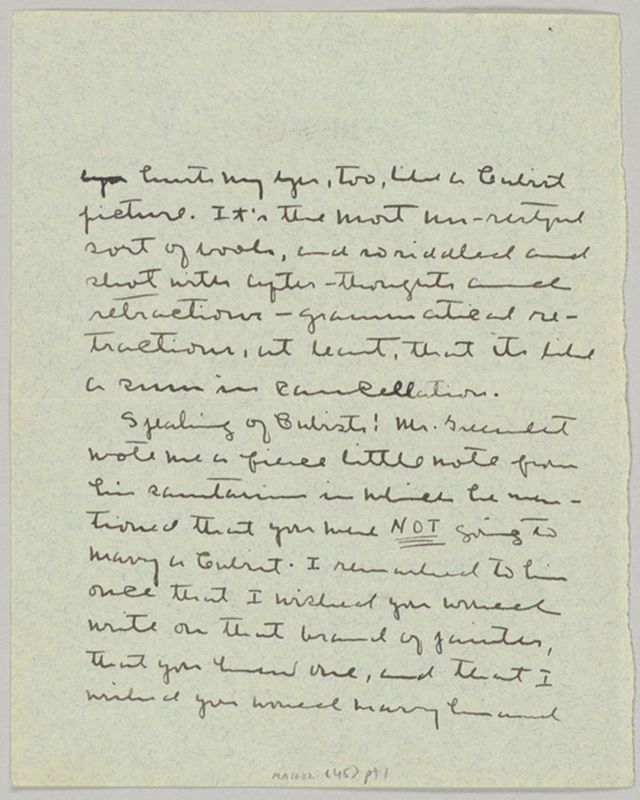 hurts my eyes, too, like a Cubist
picture. It's the most un-restful
sort of book, and so riddled and
shot with after-thoughts and
retractions – grammatical re-
tractions, at least, that its like
a sum in cancellation.
Speaking of Cubists! Mr. Greenslet
wrote me a fierce little note from
his sanitarium in which he men-
tioned that you were NOT going to
marry a Cubist. I remarked to him
once that I wished you would
write on that brand of painter,
that you knew one, and that I
wished you would marry him and
MA1602 (45) pt 1